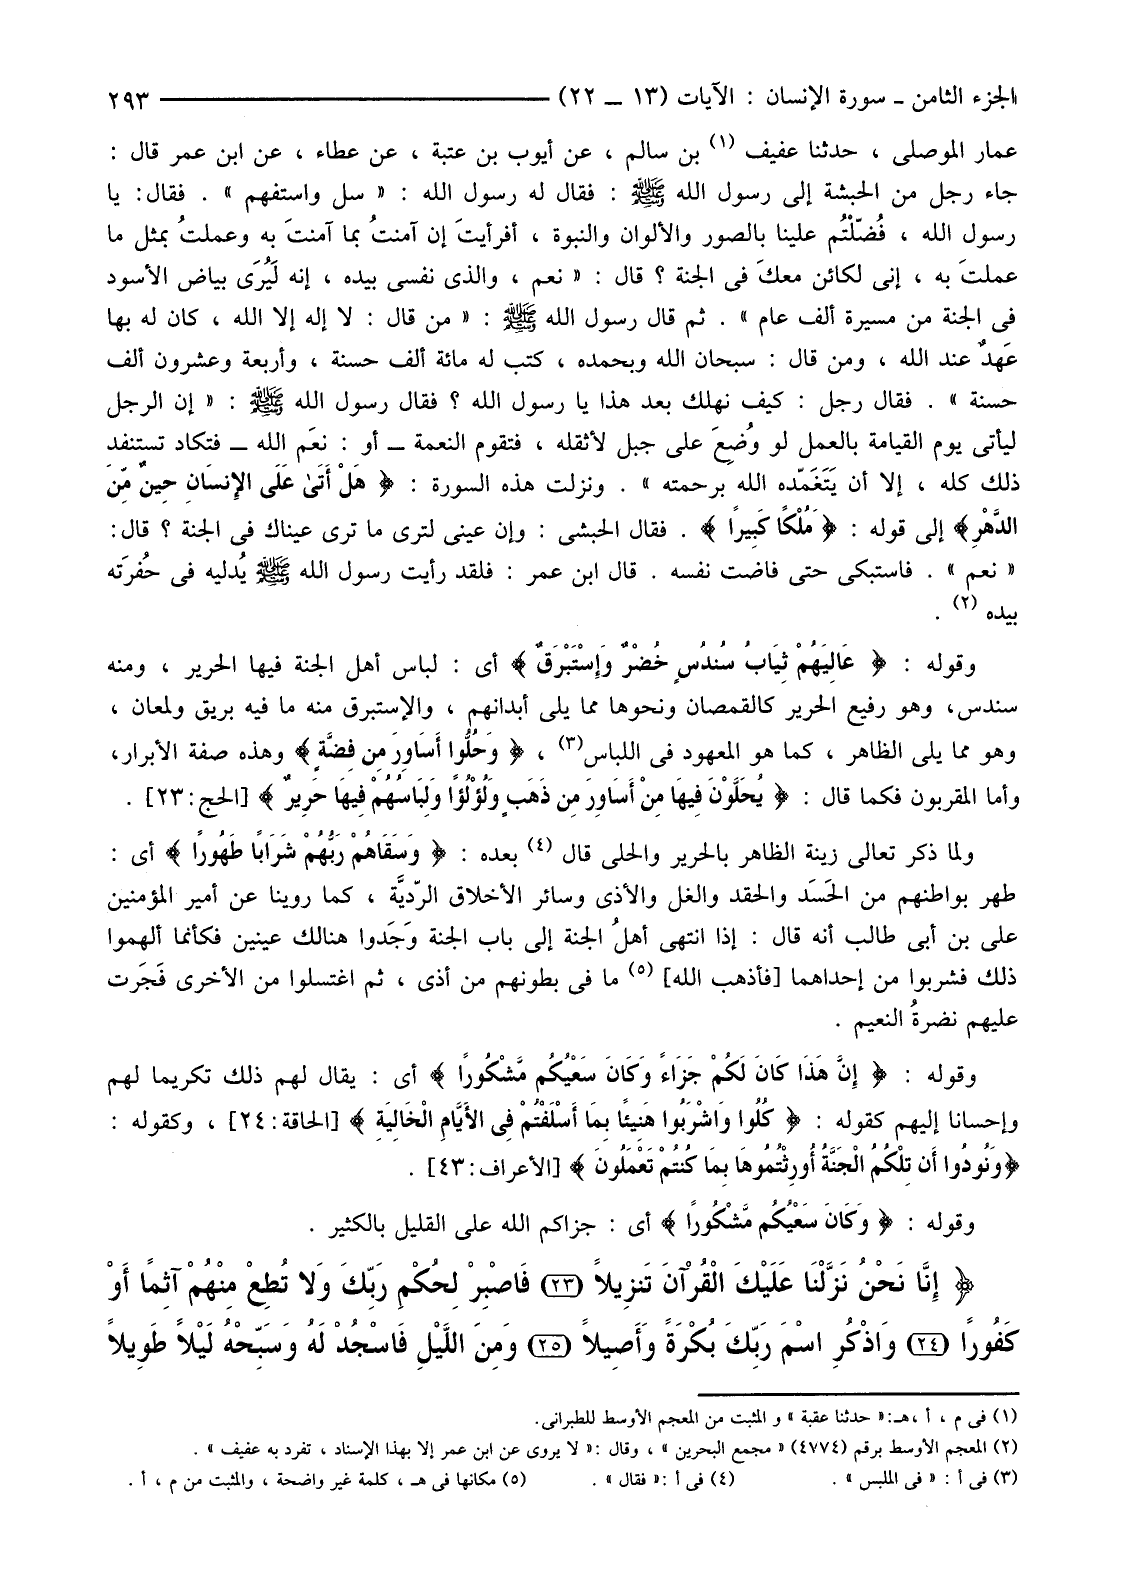 الجزء الثامن ـ سورة الإنسان : الآيات (١٣ ــ ٢٢) ٢٩٣
عمار الموصلى ، حدثنا عفيف (١) بن سالم ، عن أيوب بن عتبة ، عن عطاء ، عن ابن عمر قال :
جاء رجل من الحبشة إلى رسول الله ﷺ : فقال له رسول الله : « سل واستفهم » . فقال: يا
رسول الله ، فُضّلْتُم علينا بالصور والألوان والنبوة ، أفرأيتَ إن آمنتُ بما آمنتَ به وعملتُ بمثل ما
عملتَ به ، إنى لكائن معكَ فى الجنة ؟ قال : « نعم ، والذى نفسى بيده ، إنه لَيُرَى بياض الأسود
فى الجنة من مسيرة ألف عام » . ثم قال رسول الله ﷺ : « من قال : لا إله إلا الله ، كان له بها
عَهدٌ عند الله ، ومن قال : سبحان الله وبحمده ، كتب له مائة ألف حسنة ، وأربعة وعشرون ألف
حسنة » . فقال رجل : كيف نهلك بعد هذا يا رسول الله ؟ فقال رسول الله ﷺ : « إن الرجل
ليأتى يوم القيامة بالعمل لو وُضِعَ على جبل لأثقله ، فتقوم النعمة ــ أو : نعَم الله ــ فتكاد تستنفد
ذلك كله ، إلا أن يَتَغَمّده الله برحمته » . ونزلت هذه السورة : ﴿ هَلْ أَتَىٰ عَلَى الإِنسَانِ حِينٌ مِّنَ
الدَّهْرِ﴾ إلى قوله : ﴿ مُلْكًا كَبِيرًا ﴾ . فقال الحبشى : وإن عينى لترى ما ترى عيناك فى الجنة ؟ قال:
« نعم » . فاستبكى حتى فاضت نفسه . قال ابن عمر : فلقد رأيت رسول الله ﷺ يُدليه فى حُفرَته
بيده (٢) .
وقوله : ﴿ عَالِيَهُمْ ثِيَابُ سُندُسٍ خُضْرٌ وَإِسْتَبْرَقٌ ﴾ أى : لباس أهل الجنة فيها الحرير ، ومنه
سندس، وهو رفيع الحرير كالقمصان ونحوها مما يلى أبدانهم ، والإستبرق منه ما فيه بريق ولمعان ،
وهو مما يلى الظاهر ، كما هو المعهود فى اللباس(٣) ، ﴿ وَحُلُّوا أَسَاوِرَ مِن فِضَّةٍ ﴾ وهذه صفة الأبرار،
وأما المقربون فكما قال : ﴿ يُحَلَّوْنَ فِيهَا مِنْ أَسَاوِرَ مِن ذَهَبٍ وَلُؤْلُؤًا وَلِبَاسُهُمْ فِيهَا حَرِيرٌ ﴾ [الحج:٢٣] .
ولما ذكر تعالى زينة الظاهر بالحرير والحلى قال (٤) بعده : ﴿ وَسَقَاهُمْ رَبُّهُمْ شَرَابًا طَهُورًا ﴾ أى :
طهر بواطنهم من الحَسَد والحقد والغل والأذى وسائر الأخلاق الرّديَّة ، كما روينا عن أمير المؤمنين
على بن أبى طالب أنه قال : إذا انتهى أهلُ الجنة إلى باب الجنة وَجَدوا هنالك عينين فكأنما ألهموا
ذلك فشربوا من إحداهما [فأذهب الله] (٥) ما فى بطونهم من أذى ، ثم اغتسلوا من الأخرى فَجَرت
عليهم نضرةُ النعيم .
وقوله : ﴿ إِنَّ هَذَا كَانَ لَكُمْ جَزَاءً وَكَانَ سَعْيُكُم مَّشْكُورًا ﴾ أى : يقال لهم ذلك تكريما لهم
وإحسانا إليهم كقوله : ﴿ كُلُوا وَاشْرَبُوا هَنِيئًا بِمَا أَسْلَفْتُمْ فِى الأَيَّامِ الْخَالِيَةِ ﴾ [الحاقة:٢٤] ، وكقوله :
﴿وَنُودُوا أَن تِلْكُمُ الْجَنَّةُ أُورِثْتُمُوهَا بِمَا كُنتُمْ تَعْمَلُونَ ﴾ [الأعراف:٤٣] .
وقوله : ﴿ وَكَانَ سَعْيُكُم مَّشْكُورًا ﴾ أى : جزاكم الله على القليل بالكثير .
﴿ إِنَّا نَحْنُ نَزَّلْنَا عَلَيْكَ الْقُرْآنَ تَنزِيلاً (٢٣) فَاصْبِرْ لِحُكْمِ رَبِّكَ وَلا تُطِعْ مِنْهُمْ آثِمًا أَوْ
كَفُورًا (٢٤) وَاذْكُرِ اسْمَ رَبِّكَ بُكْرَةً وَأَصِيلاً (٢٥) وَمِنَ اللَّيْلِ فَاسْجُدْ لَهُ وَسَبِّحْهُ لَيْلاً طَوِيلاً
(١) فى م ، أ ،هـ:« حدثنا عقبة » و المثبت من المعجم الأوسط للطبرانى.
(٢) المعجم الأوسط برقم (٤٧٧٤) « مجمع البحرين » ، وقال :« لا يروى عن ابن عمر إلا بهذا الإسناد ، تفرد به عفيف » .
(٣) فى أ : « فى الملبس » . (٤) فى أ :« فقال » . (٥) مكانها فى هـ ، كلمة غير واضحة ، والمثبت من م ، أ .